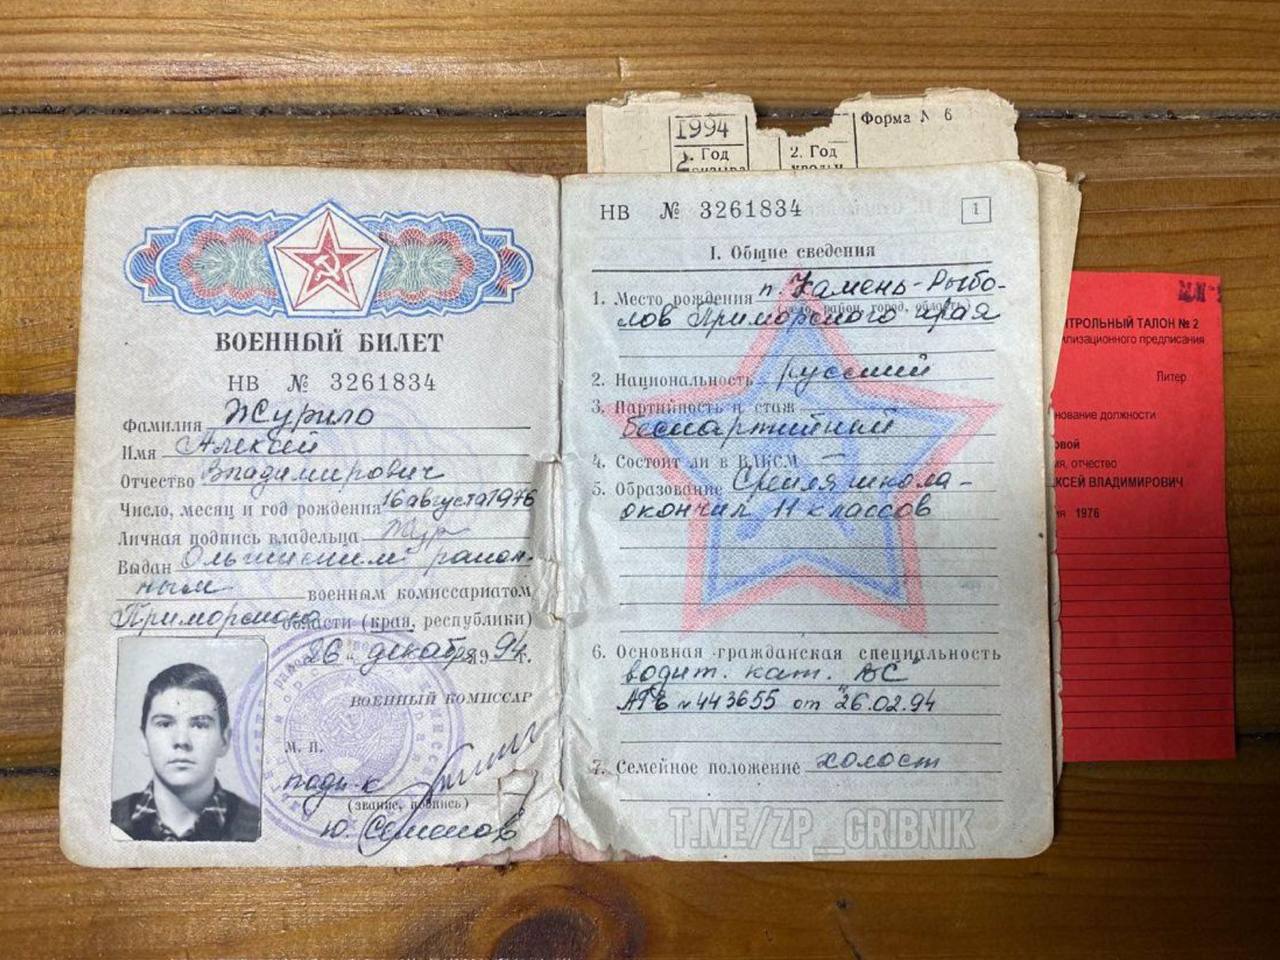 1994
Форма № 6
1. Год
2. Год
призыва
увольн
ВОЕННЫЙ БИЛЕТ
НВ № 3261834
Фамилия Журило
Имя Алексей
Отчество Владимирович
Число, месяц и год рождения 16 августа 1976
Личная подпись владельца Жур
Выдан Ольгинским район-
ным военным комиссариатом
Приморского области (края, республики)
„26“ декабря 1994г.
ВОЕННЫЙ КОМИССАР
М. П.
подп-к
(звание, подпись)
Ю. Семенов
НВ № 3261834
1
I. Общие сведения
1. Место рождения п. Камень-Рыбо-
(село, район, город, область)
лов Приморского края
2. Национальность русский
3. Партийность и стаж
беспартийный
4. Состоит ли в ВЛКСМ —
5. Образование Средняя школа-
окончил 11 классов
6. Основная гражданская специальность
водит. кат. "ВС"
АГЕ № 443655 от 26.02.94
7. Семейное положение холост
T.ME/ZP__GRIBNIK
НТРОЛЬНЫЙ ТАЛОН № 2
илизационного предписания
Литер
нование должности
овой
мя, отчество
КСЕЙ ВЛАДИМИРОВИЧ
ия 1976